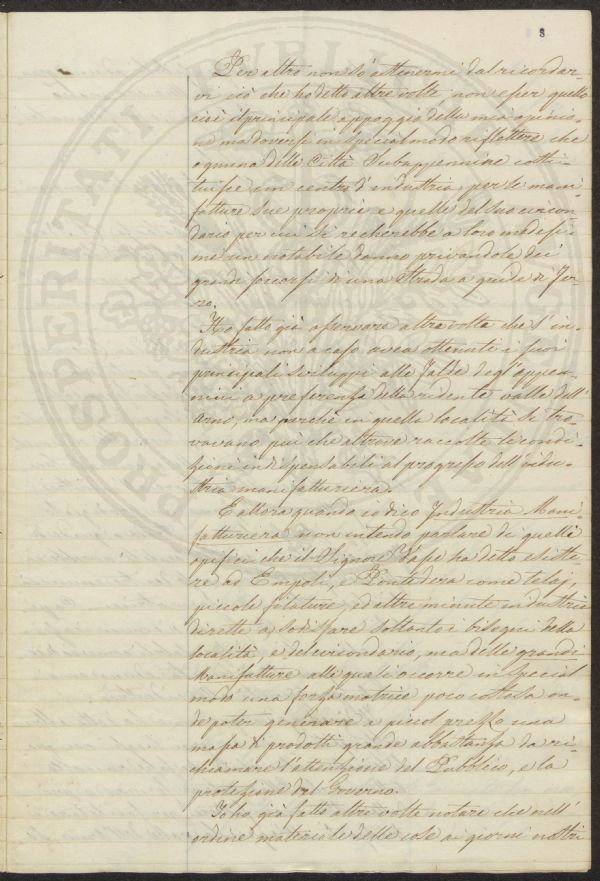 8
Per altro non so attenermi dal ricordar-
vi ciò che ho detto altre volte, non esser quello
cioè il principale appoggio della mia opinio-
ne ma doversi in special modo riflettere che
ognuna delle Città Subappennine costi-
tuisce un centro d'industria per le mani-
fatture sue proprie e quelle del suo circon-
dario per cui si recherebbe a loro medesi-
me un notabile danno privandole dei
grandi soccorsi di una Strada a guide di fer-
ro.
Ho fatto già osservare altra volta che l'in-
dustria non a caso avea ottenuti i suoi
principali sviluppi alle falde degl'appen-
nini a preferenza della ridente valle dell'
Arno, ma perchè in quella località si tro-
vavano più che altrove raccolte le condi-
zioni indispensabili al progresso dell'indu-
stria manifatturiera.
E allora quando io dico Industria Mani-
fatturiera non intendo parlare di quelli
opifici che il Signore ha detto esiste-
re ad Empoli, e Pontedera come telaj,
piccole filature, ed altre minute industrie
dirette a sodisfare soltanto i bisogni della
località, e del circondario, ma delle grandi
Manifatture alle quali occorre in special
modo una forza motrice poco costosa on-
de poter generare a piccol prezzo una
massa di prodotti grande abbastanza da ri-
chiamare l'attenzione del Pubblico, e la
protezione del Governo.
Io ho già fatto altre volte notare che nell'
ordine materiale delle cose ai giorni nostri
PROSPERITATI PUBLI